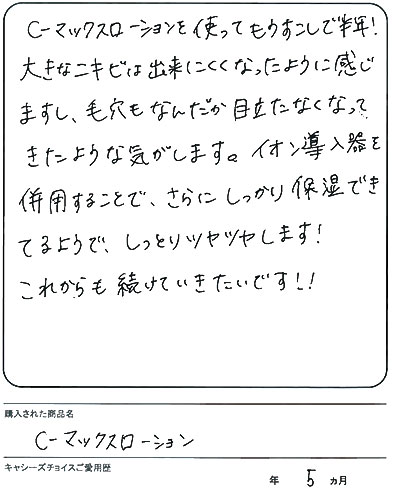 C-マックスローションを使ってもうすこしで半年!
大きなニキビは出来にくくなったように感じ
ますし、毛穴もなんだか目立たなくなって
きたような気がします。イオン導入器を
併用することで、さらにしっかり保湿でき
てるようで、しっとりツヤツヤします!
これからも続けていきたいです!!
購入された商品名
C-マックスローション
キャシーズチョイスご愛用歴
年 5 ヵ月